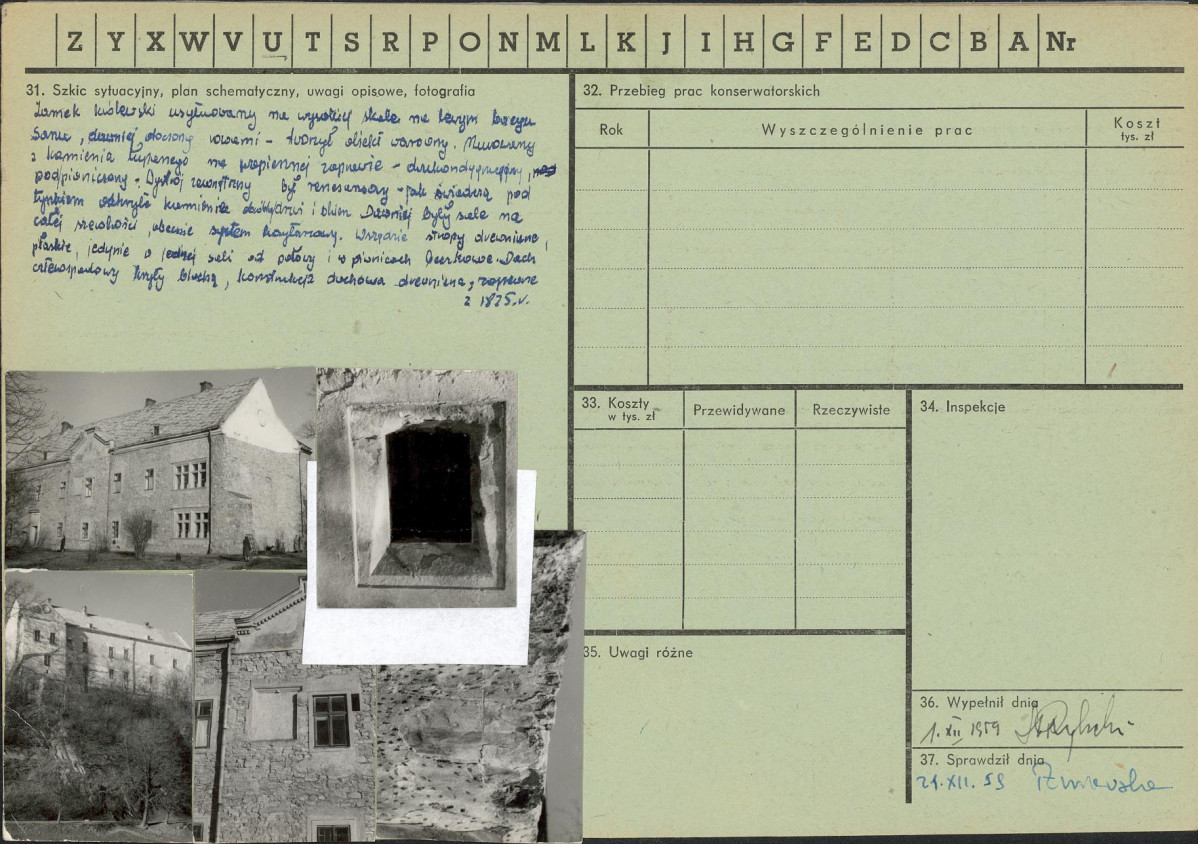 Z Y X W V U T S R P O N M L K J I H G F E D C B A Nr
31. Szkic sytuacyjny, plan schematyczny, uwagi opisowe, fotografia
Zamek królewski usytuowany na wysokiej skale na lewym brzegu
Sanu, dawniej otoczony wałami – tworzył obiekt warowny. Murowany
z kamienia łupanego na wapiennej zaprawie – dwukondygnacyjny,
podpiwniczony. Wystrój zewnętrzny był renesansowy – jak świadczą pod
tynkiem odkryte kamienne drzwi i okien Dawniej były sale na
całej szerokości, obecnie system korytarzowy. Wszędzie stropy drewniane,
płaskie, jedynie w jednej sali od połowy i w piwnicach beczkowe. Dach
czterospadowy kryty blachą, konstrukcja dachowa drewniana, zapewne
z 1875.r.
32. Przebieg prac konserwatorskich
Rok
Wyszczególnienie prac
Koszt
tys. zł
33. Koszty
w tys. zł
Przewidywane
Rzeczywiste
34. Inspekcje
35. Uwagi różne
36. Wypełnił dnia
1. XII 1959
37. Sprawdził dnia
21. XII. 59